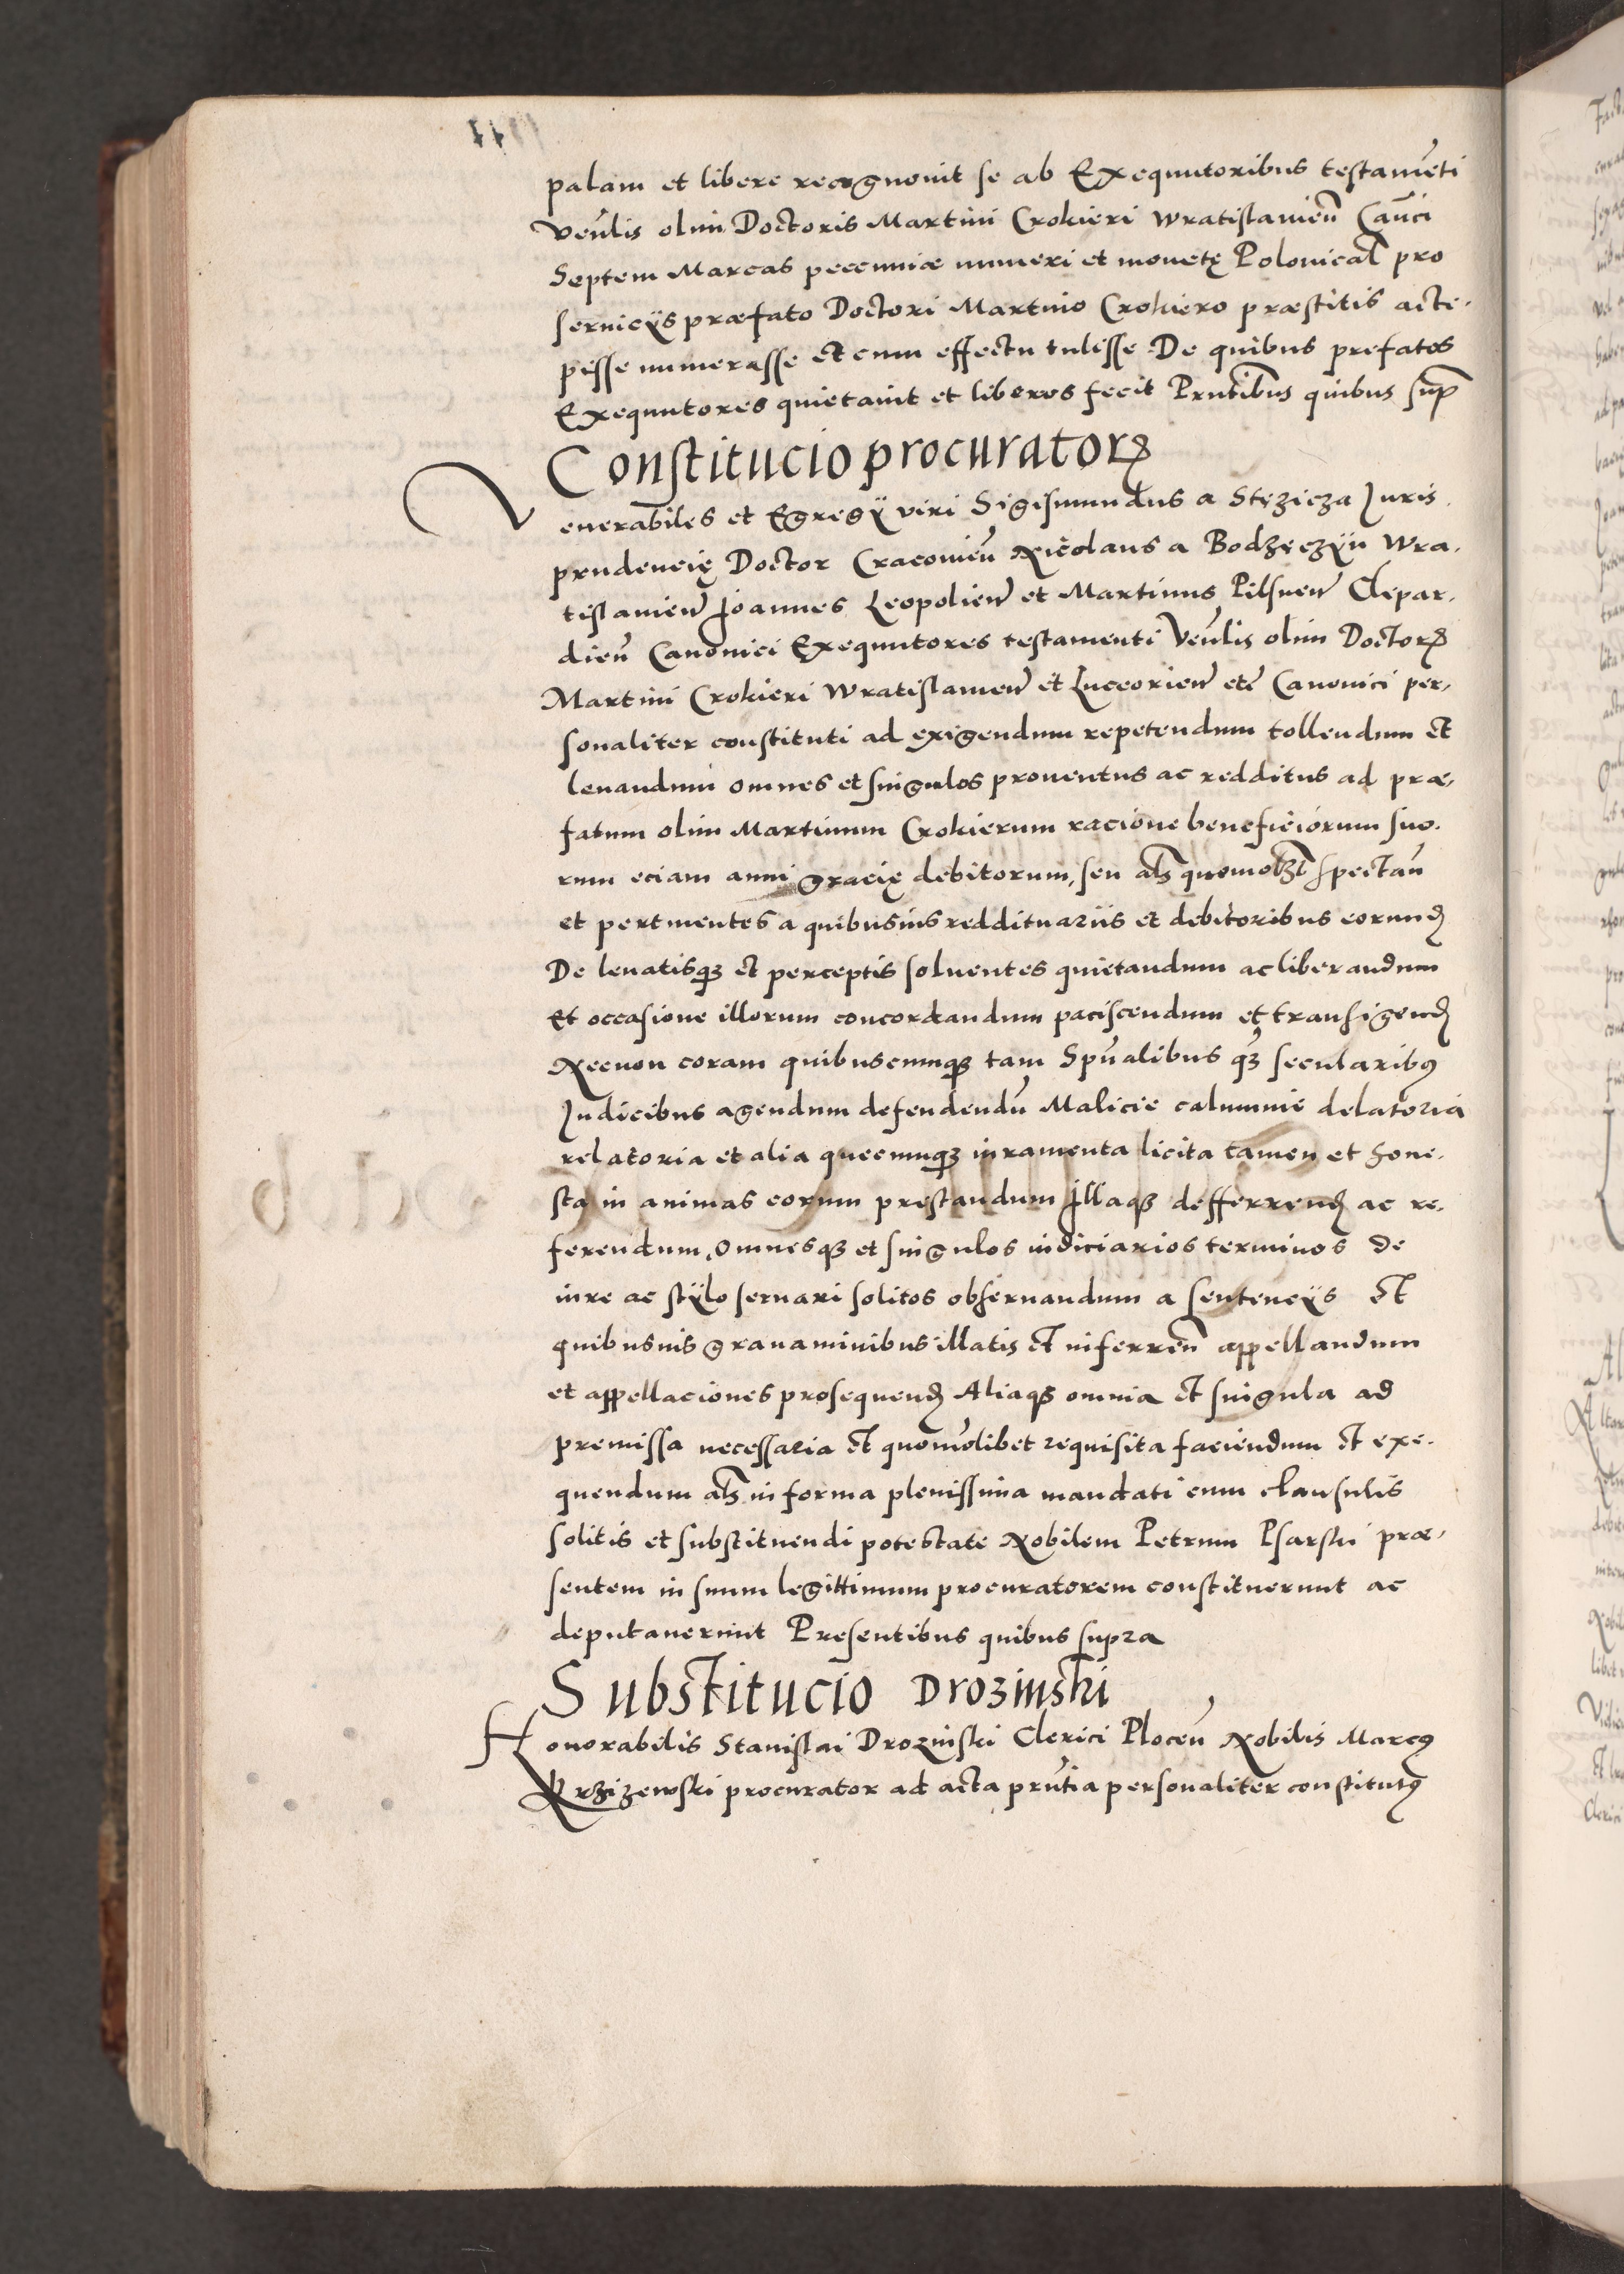 palam et libere recognovit se ab Exequutoribus testamẽti
Veñlis olim Doctoris Martini Crokieri Wratislavieñ Cañci
Septem Marcas pecuniæ numeri et monetę Polonical pro
servicÿs præfato Doctori Martino Crokiero præstitis acce-
pisse numerasse et cum effectu tulisse De quibus prefatos
Exequutores quietavit et liberos fecit Prñtibus quibus sup
Constitucio procuratorꝝ
Venerabiles et Egregÿ viri Sigismundus a Stęzicza Juris
prudencię Doctor Cracovieñ Nicolaus a Bodzęczÿn Wra-
tislavieñ Joannes Leopolieñ et Martinus Pilsneñ Clepar-
dieñ Canonici Exequutores testamenti Veñlis olim Doctorꝝ
Martini Crokieri Wratislavieñ et Luceorieñ etc̃ Canonici per-
sonaliter constituti ad exigendum repetendum tollendum et
levandum omnes et singulos proventus ac redditus ad præ-
fatum olim Martinum Crokierum racione beneficiorum suo-
rum eciam anni gracię debitorum, seu als quomolzt spectañ
et pertinentes a quibusvis reddituariis et debitoribus eorund
De levatisqꝫ et perceptis solventes quietandum ac liberandum
Et occasione illorum concordandum paciscendum et transigend
Necnon coram quibuscumqꝫ tam Spũalibus qꝫ secularibꝰ
Judicibus agendum defendendũ Malicie calumnie delatoria
relatoria et alia quecumqꝫ iuramenta licita tamen et hone-
sta in animas eorum prestandum Illaqꝫ defferrend ac re-
ferendum, omnesqꝫ et singulos iudiciarios terminos de
iure ac stÿlo servari solitos observandum a sentencÿs et
quibusvis gravaminibus illatis et inferreñ appellandum
et appellaciones prosequend Aliaqꝫ omnia et singula ad
premissa necessaria et quomõlibet requisita faciendum et exe-
quendum als in forma plenissima mandati cum clausulis
solitis et substituendi potestate Nobilem Petrum Psarski præ-
sentem in suum legittimum procuratorem constituerunt ac
deputaverunt Presentibus quibus supra
Substitucio Drozinski
Honorabilis Stanislai Drozinski Clerici Ploceñ Nobilis Marcꝰ
Krzizewski procurator ad acta prñtia personaliter constitutꝰ